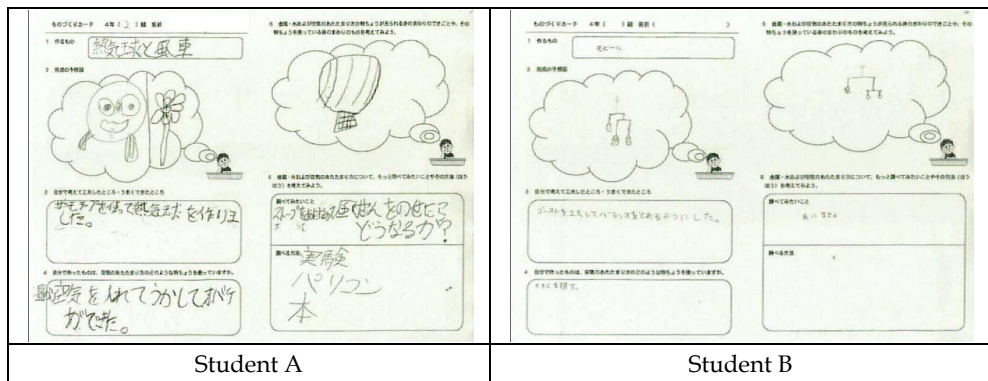 ものづくりカード 4年( 2 )組 名前
1 作るもの
熱気球と風車
2 完成の予想図
3 自分で考えて工夫したところ・うまくできたところ
サーモテープを使って熱気球を作りま
した。
4 自分で作ったものは、空気のあたたまり方のどのような特ちょうを使っていますか。
空気を入れてうかしてオバケ
ができた。
5 金属・水および空気のあたたまり方の特ちょうが見られる身のまわりのできごとや、その
特ちょうを使っている身のまわりのものを考えてみよう。
6 金属・水および空気のあたたまり方について、もっと調べてみたいことやその方法(ほう
ほう)を考えてみよう。
調べてみたいこと
どうなるか?
調べる方法
実験
パソコン
本
ものづくりカード 4年( )組 名前( )
1 作るもの
モビール
2 完成の予想図
3 自分で考えて工夫したところ・うまくできたところ
ゴーストを工夫してバランスをとれるようにした。
4 自分で作ったものは、空気のあたたまり方のどのような特ちょうを使っていますか。
5 金属・水および空気のあたたまり方の特ちょうが見られる身のまわりのできごとや、その
特ちょうを使っている身のまわりのものを考えてみよう。
6 金属・水および空気のあたたまり方について、もっと調べてみたいことやその方法(ほう
ほう)を考えてみよう。
調べてみたいこと
ありません
調べる方法
Student A
Student B